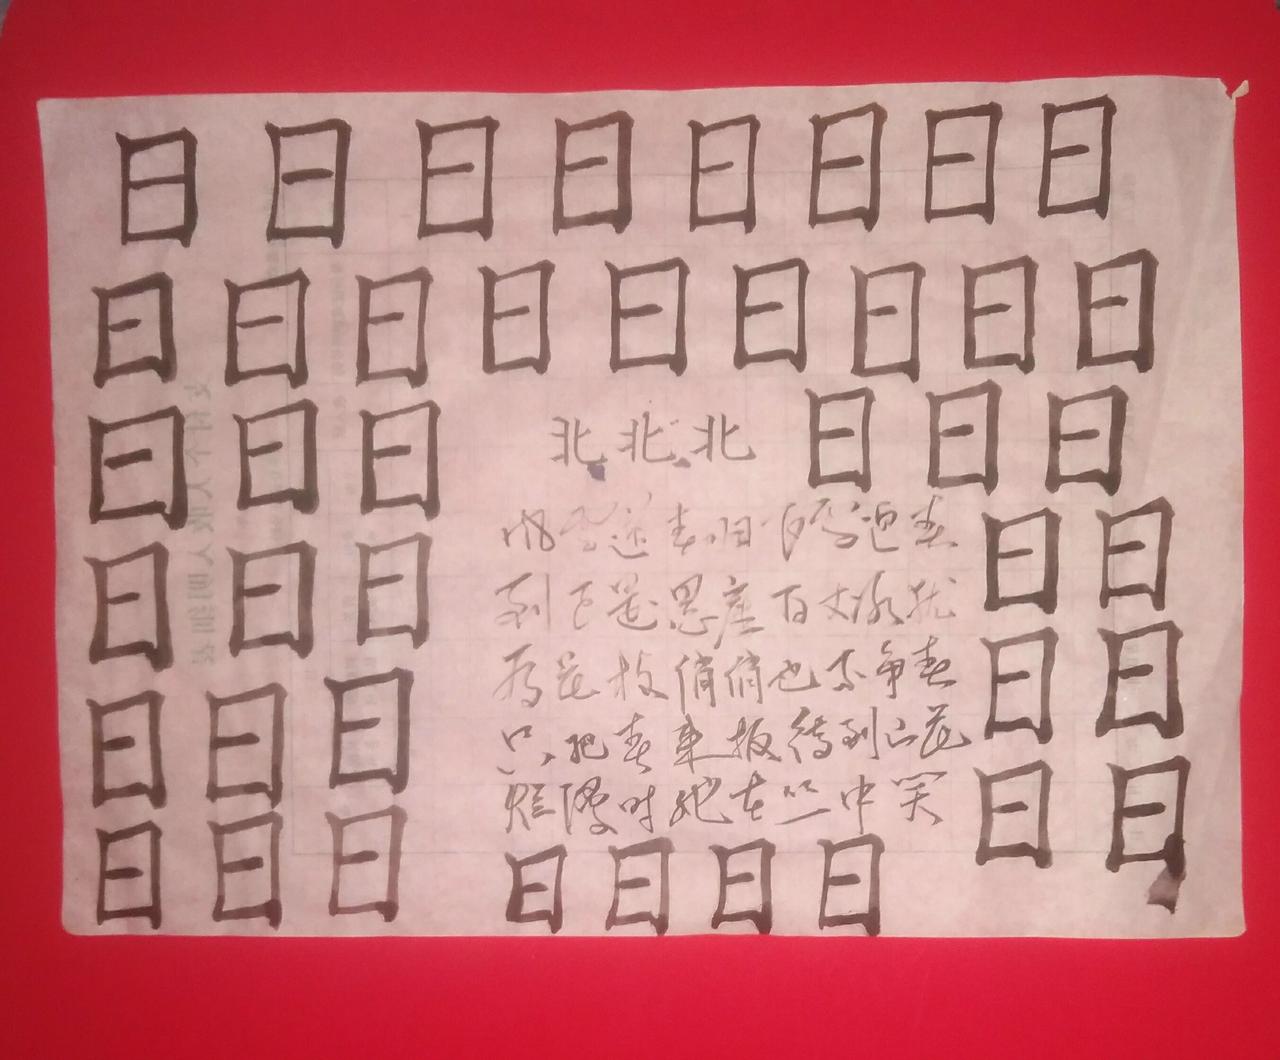 日日日日日日日日
日日日日日日日日日
日日日 北北北 日日日
风雨送春归飞雪迎春 日日
日日日 到已是悬崖百丈冰犹
有花枝俏俏也不争春 日日
日日日 只把春来报待到山花
烂漫时她在丛中笑 日日
日日日 日日日日